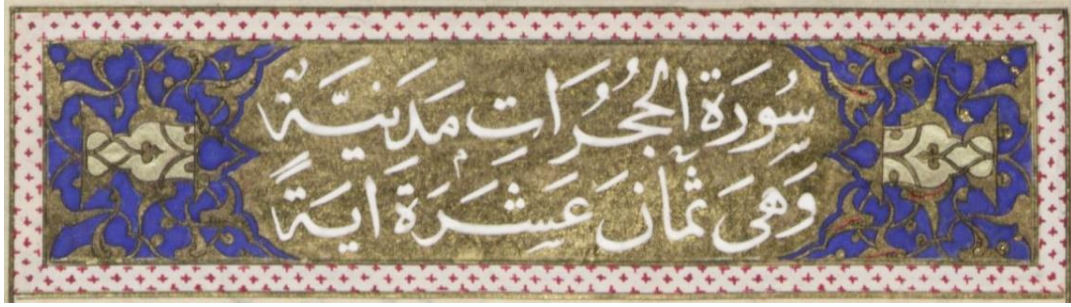 سُورَة الحُجُرَاتِ مَدَنِيَّةٌ
وَهِىَ ثَمَانَ عَشِرَةَ اٰيَةً